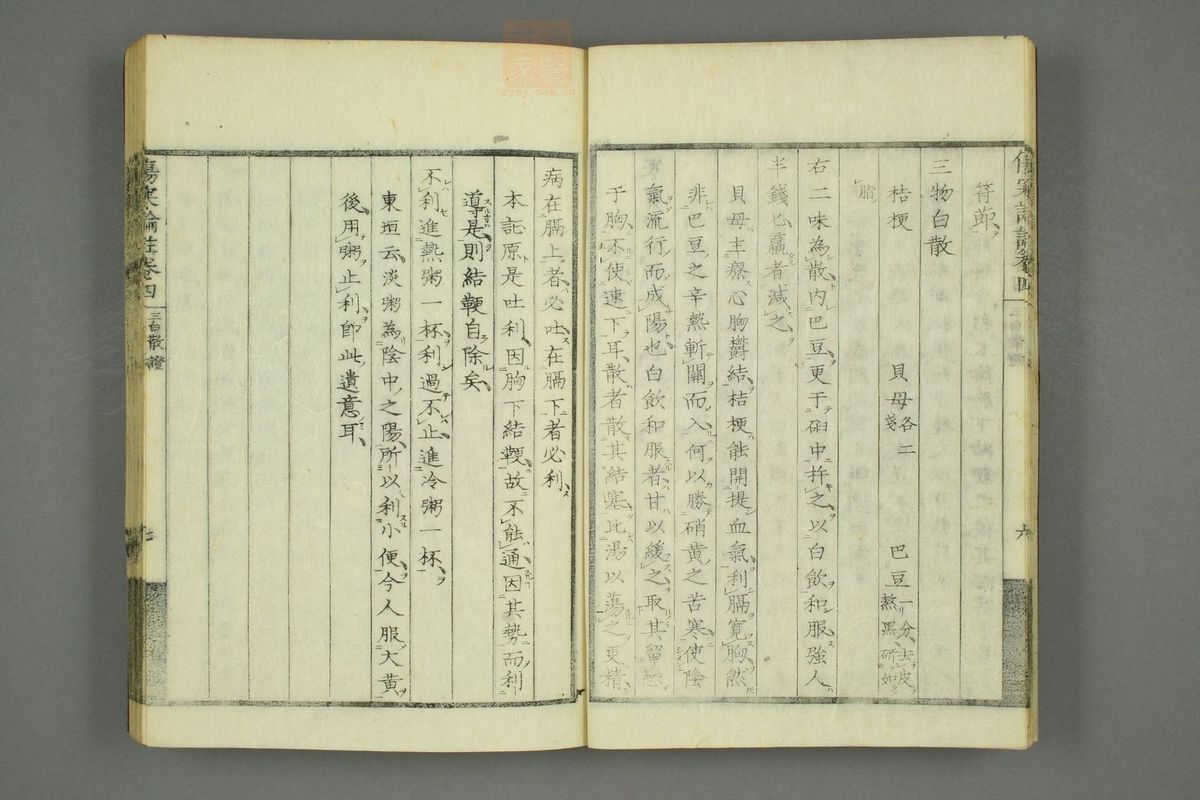 符節
三物白散
桔梗 貝母各二錢 巴豆一分去皮熬黑研如
脂
右二味為散內巴豆更于臼中杵之以白飲和服強人
半錢匕羸者減之
貝母主療心胸鬱結桔梗能開提血氣利膈寬胸然
非巴豆之辛熱斬關而入何以勝硝黃之苦寒使陰
氣流行而成陽也白飲和服者甘以緩之取其留戀
于胸不使速下耳散者散其結塞比湯以蕩之更精
病在膈上者必吐在膈下者必利
本証原是吐利因胸下結鞕故不能通因其勢而利
導是則結鞕自除矣
不利進熱粥一杯利過不止進冷粥一杯
東垣云淡粥為陰中之陽所以利小便今人服大黃
後用粥止利即此遺意耳
傷寒論註卷四 三白散證